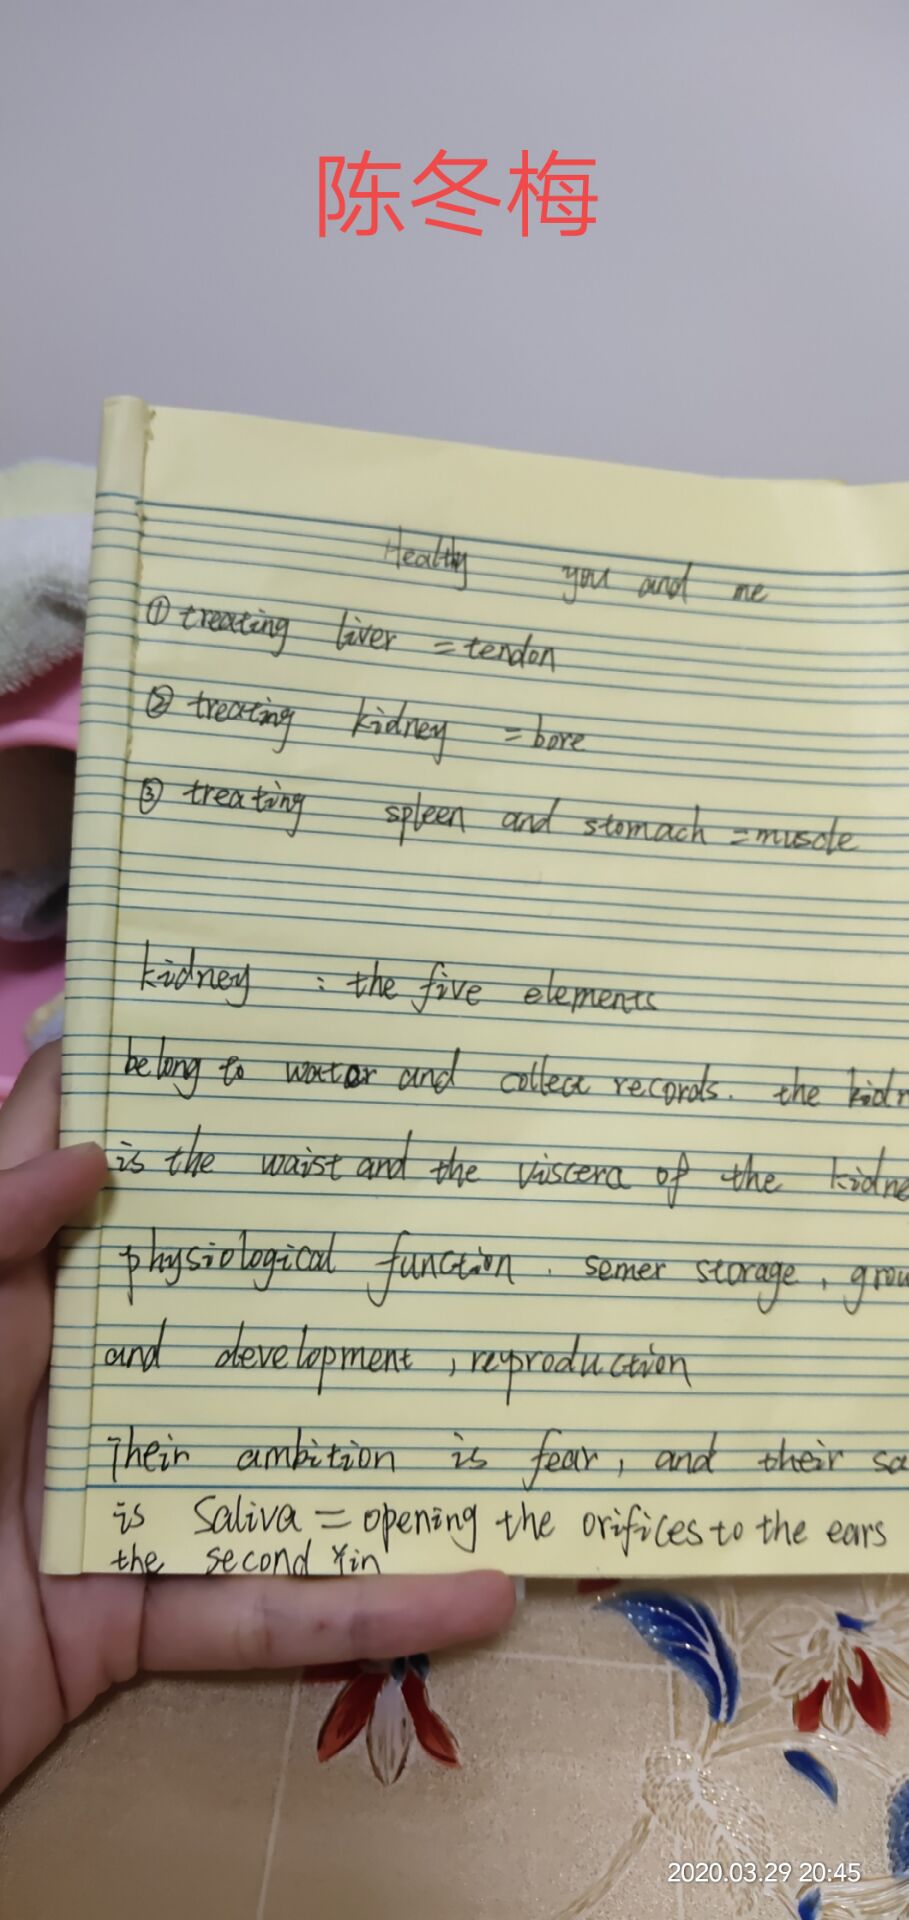 陈冬梅
Healthy you and me
① treating liver = tendon
② treating kidney = bore
③ treating spleen and stomach = muscle
kidney : the five elements
belong to water and collect records. the kidn
is the waist and the viscera of the kidne
physiological function. semer storage, grow
and development, reyproduction
Their ambition is fear, and their sa
is Saliva = opening the orifices to the ears
the second Yin
2020.03.29 20:45